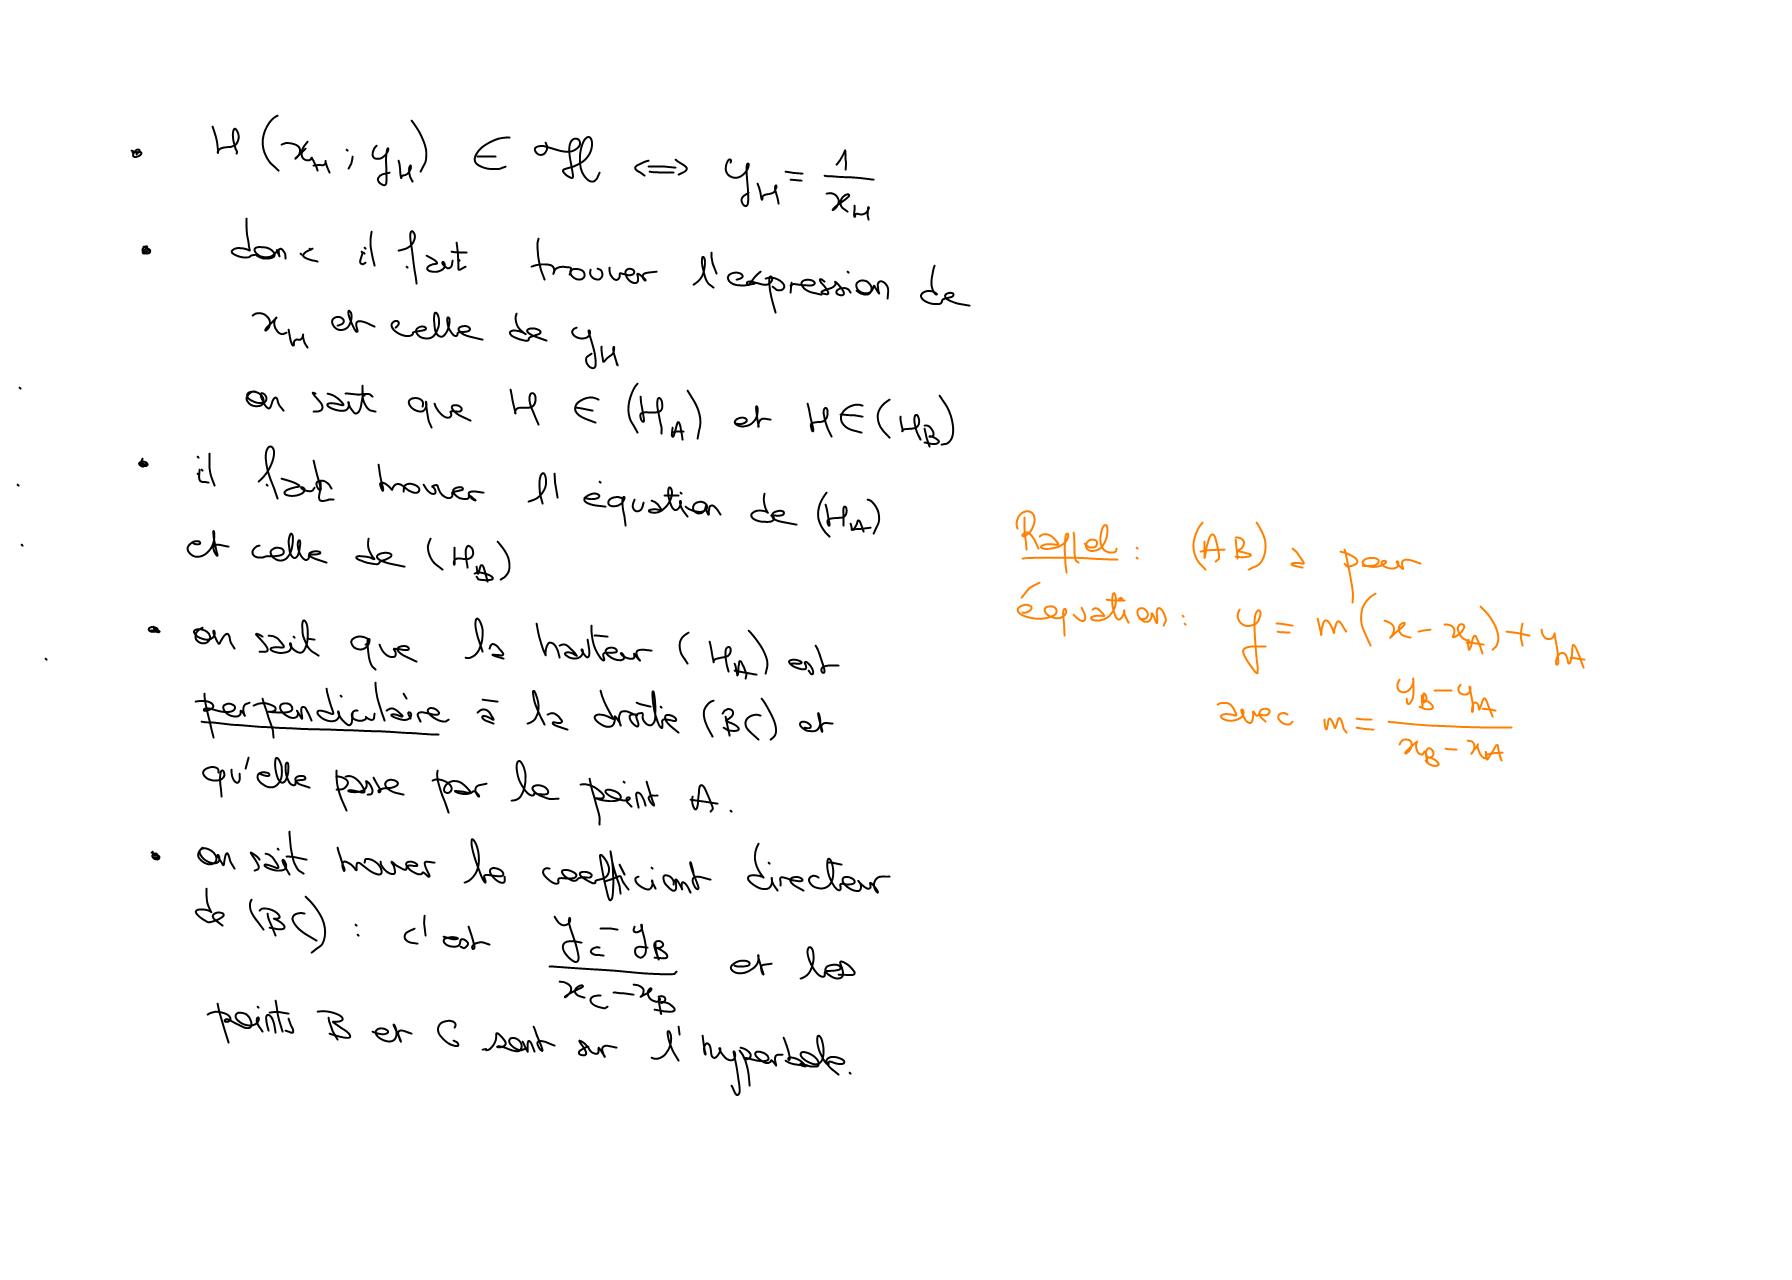 • H(x_H ; y_H) ∈ ℋ ⟺ y_H = 1/x_H
• donc il faut trouver l'expression de
x_H et celle de y_H
on sait que H ∈ (H_A) et H ∈ (H_B)
• il faut trouver l'équation de (H_A)
et celle de (H_B)
• on sait que la hauteur (H_A) est
perpendiculaire à la droite (BC) et
qu'elle passe par le point A.
• on sait trouver le coefficient directeur
de (BC) : c'est (y_C - y_B)/(x_C - x_B) et les
points B et C sont sur l'hyperbole.
Rappel : (AB) a pour
équation : y = m(x - x_A) + y_A
avec m = (y_B - y_A)/(x_B - x_A)